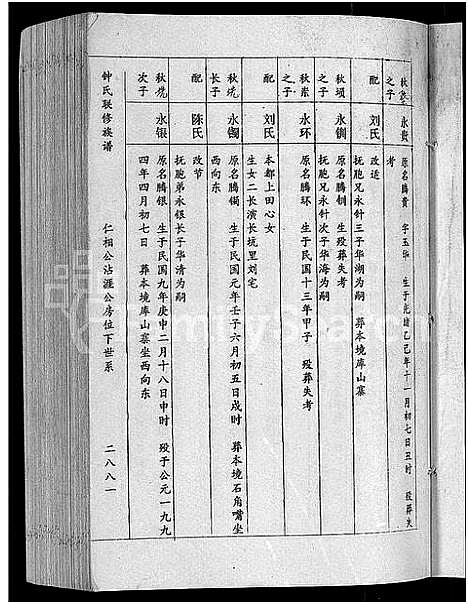 秋 之子 永贵 原名腾贵 字玉华 生于光绪乙己年十一月初七日丑时 殁葬失
考
配 刘氏 改适
抚胞兄永针三子华湖为嗣 葬本境库山寨
秋埙 之子 永钏 原名腾钏 生殁葬失考
抚胞兄永针次子华海为嗣
秋 之子 永环 原名腾环 生于民国十三年甲子 殁葬失考
配 刘氏 本都上田心女
生女二长演长坑里刘宅
秋 长子 永镯 原名腾镯 生于民国元年壬子六月初五日戍时 葬本境石角嘴坐
西向东
配 陈氏 改节
抚胞弟永银长子华清为嗣
秋 次子 永银 原名腾银 生于民国九年庚申二月十八日申时 殁于公元一九九
四年四月初七日 葬本境库山寨坐西向东
钟氏联修族谱 仁相公沾涯公房位下世系 二八八一